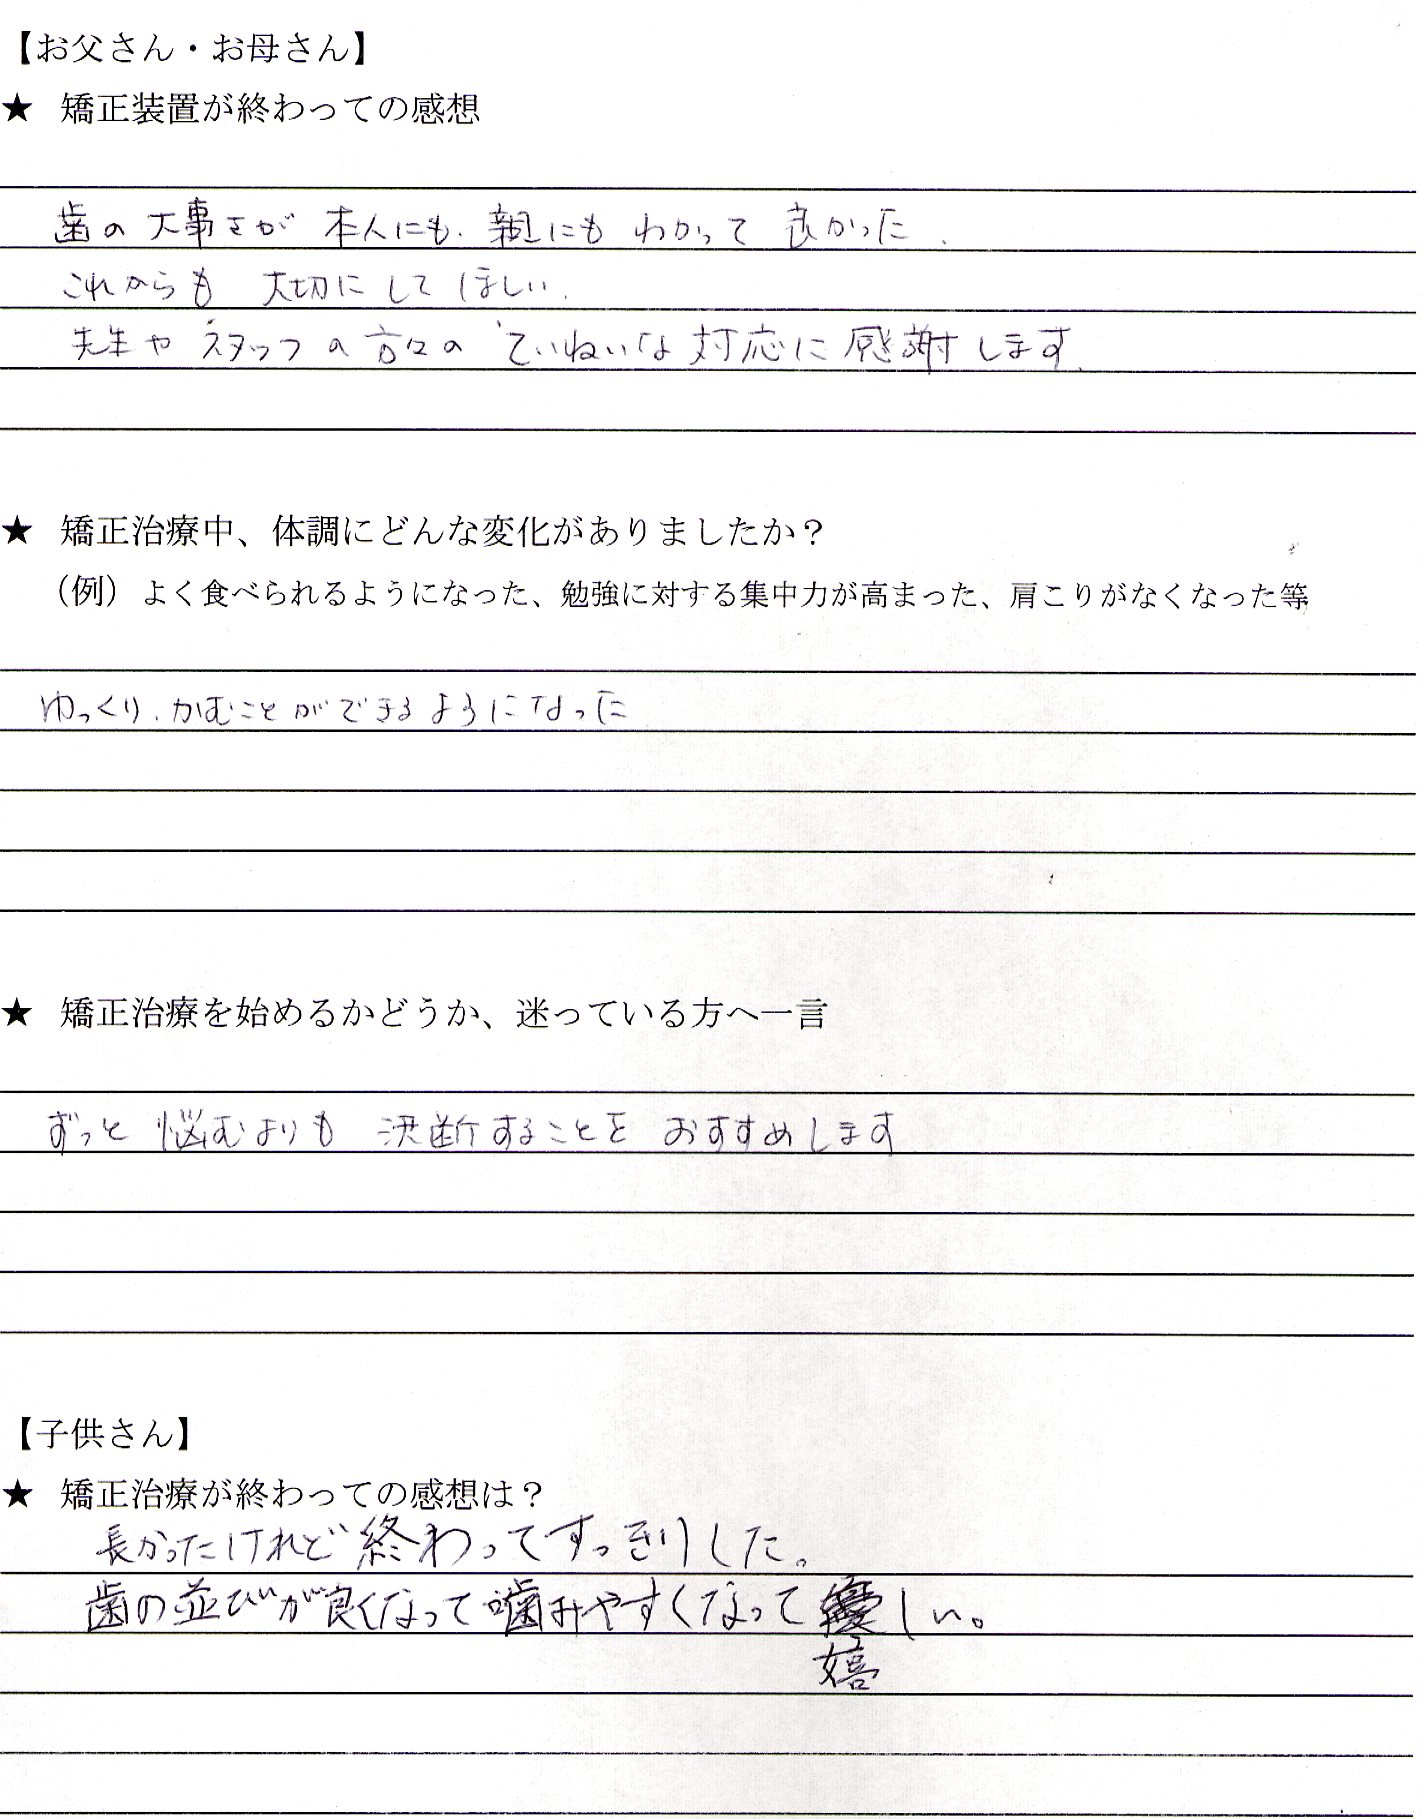 【お父さん・お母さん】
★ 矯正装置が終わっての感想
歯の大事さが 本人にも、親にも わかって 良かった。
これからも 大切にしてほしい。
先生や スタッフの方々の ていねいな対応に感謝します。
★ 矯正治療中、体調にどんな変化がありましたか？
（例）よく食べられるようになった、勉強に対する集中力が高まった、肩こりがなくなった等
ゆっくり、かむことができるようになった
★ 矯正治療を始めるかどうか、迷っている方へ一言
ずっと 悩むよりも 決断することを おすすめします
【子供さん】
★ 矯正治療が終わっての感想は？
長かったけれど終わってすっきりした。
歯の並びが良くなって噛みやすくなってしい。
嬉